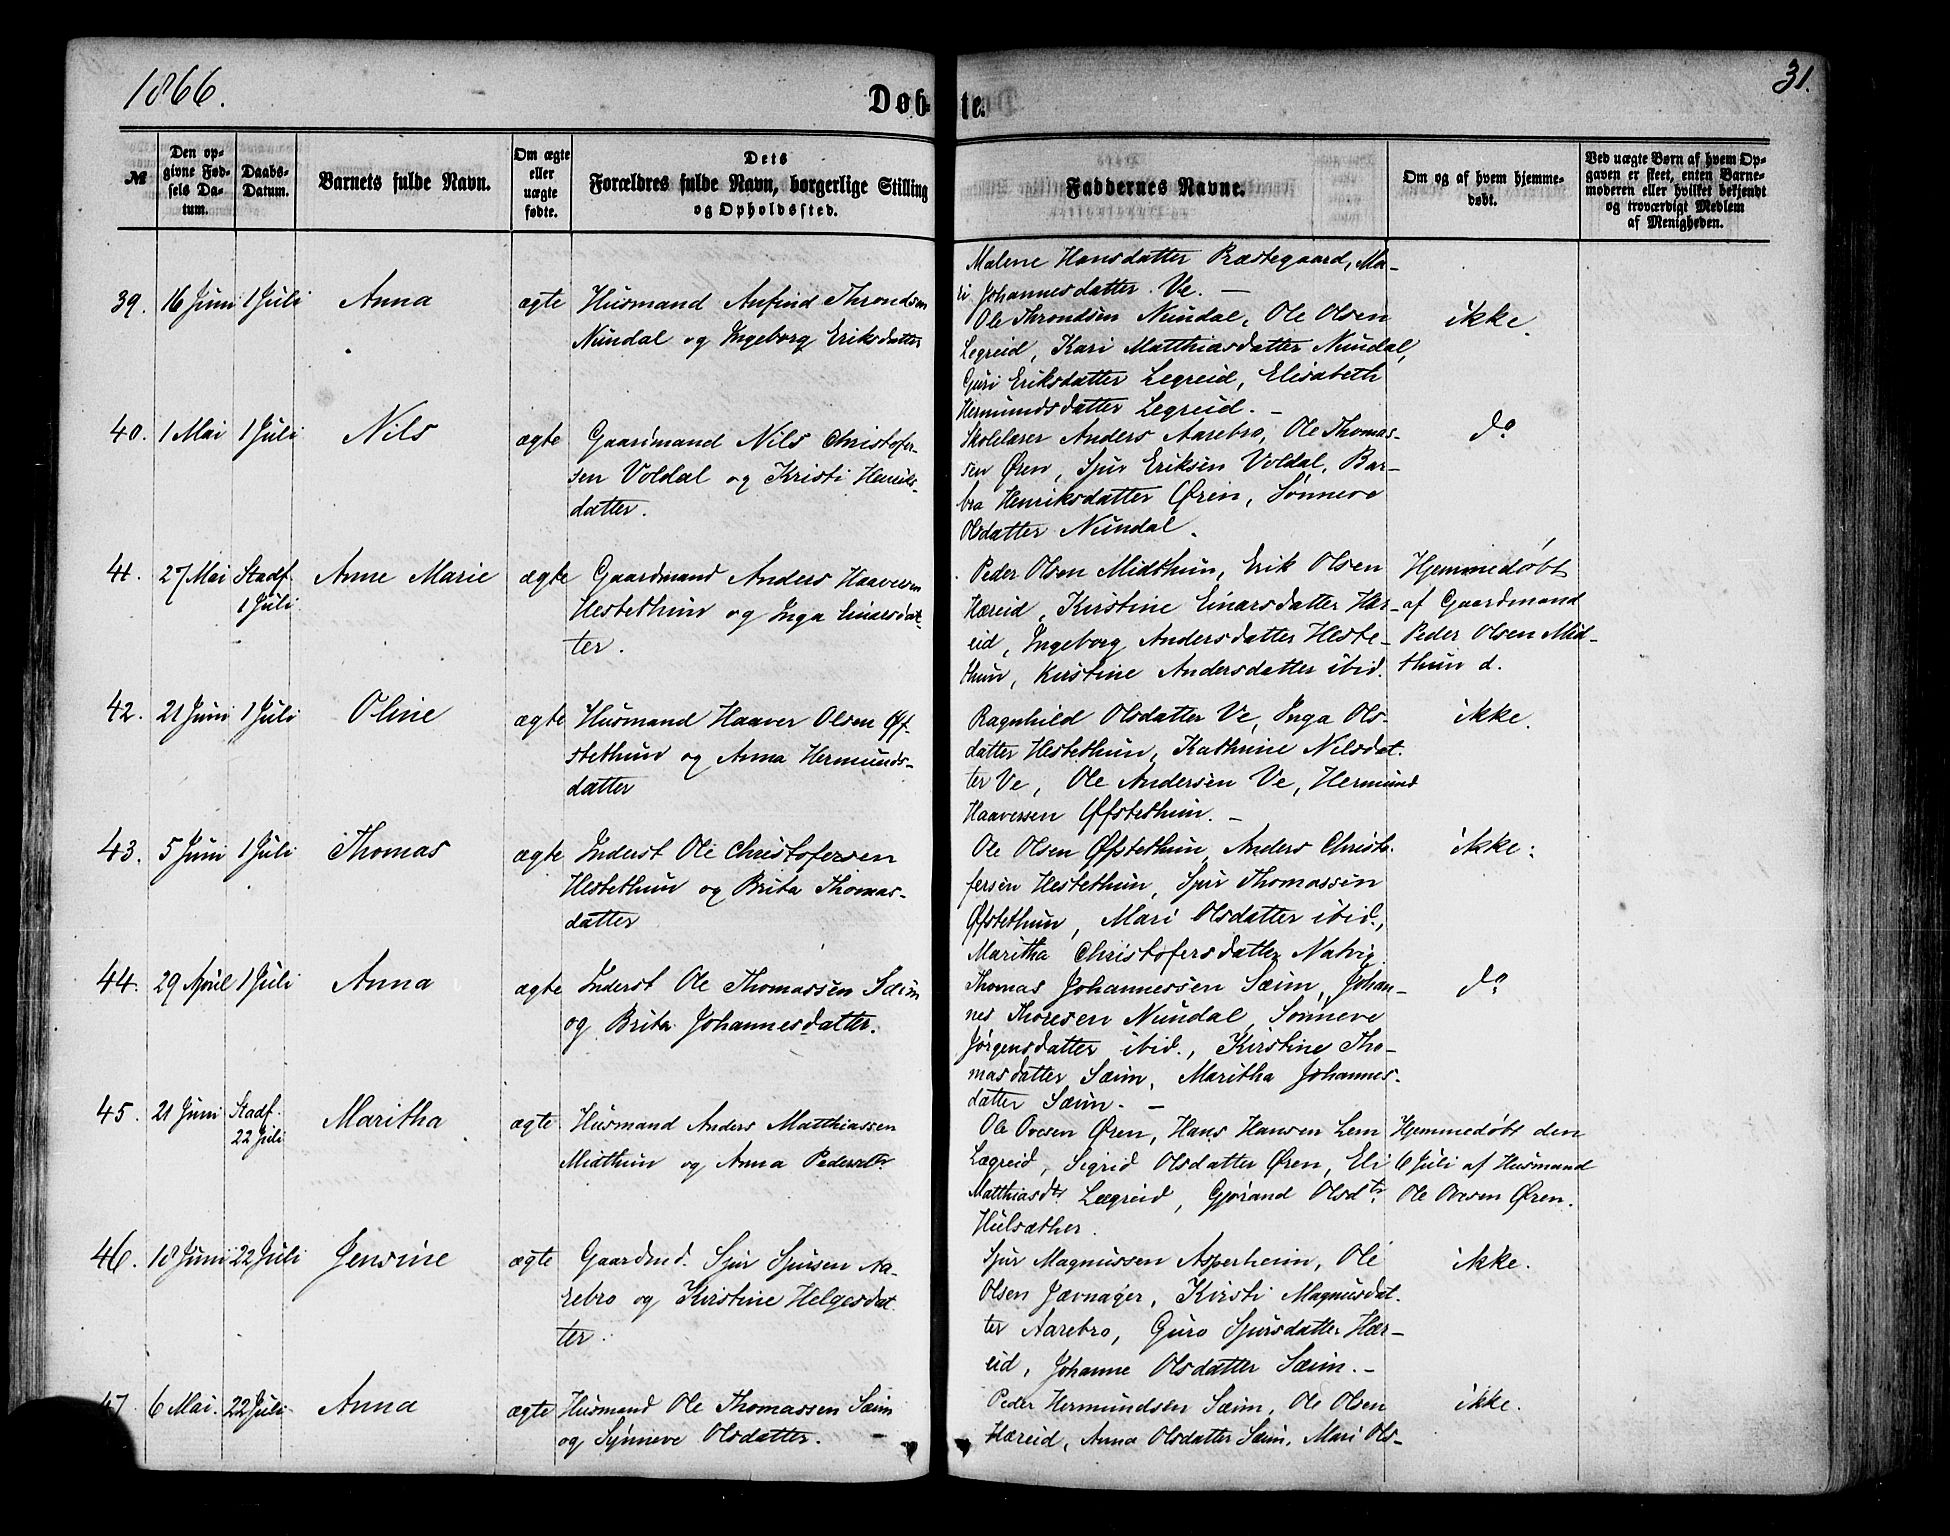 1866.
Døb-
te.
31.
№
Den op-
givne Fød-
sels Da-
tum.
Daabs-
Datum.
Barnets fulde Navn.
Om ægte
eller
uægte
fødte.
Dets
Forældres fulde Navn, borgerlige Stilling
og Opholdssted.
Faddernes Navne.
Om og af hvem hjemme-
døbt.
Ved uægte Børn af hvem Op-
gaven er skeet, enten Barne-
moderen eller hvilket bekjendt
og troværdigt Medlem
af Menigheden.
Malene Hansdatter Præstegaard, Ma-
ri Johannesdatter Ve. —
39. 16 Juni 1 Juli Anna ægte
Husmand Anfind Throndsen
Nundal og Ingeborg Eriksdatter
Ole Throndsen Nundal, Ole Olsen
Legreid, Kari Matthiasdatter Nundal,
Guri Eriksdatter Legreid, Elisabeth
Hermundsdatter Legreid. —
ikke.
40. 1 Mai 1 Juli Nils ægte
Gaardmand Nils Christofer-
sen Voldal og Kristi Henriks-
datter.
Skolelærer Anders Aarebro, Ole Thomas-
sen Øren, Sjur Eriksen Voldal, Bar-
bra Henriksdatter Øren, Sønneve
Olsdatter Nundal.
do
41. 27 Mai Stadf. 1 Juli Anne Marie ægte
Gaardmand Anders Haaversen
Hestethun og Inga Einarsdat-
ter.
Peder Olsen Midthun, Erik Olsen
Hæreid, Kirstine Einarsdatter Hæ-
reid, Ingeborg Andersdatter Heste-
thun, Kirstine Andersdatter ibid.
Hjemmedøbt
af Gaardmand
Peder Olsen Mid-
thun d.
42. 21 Juni 1 Juli Oline ægte
Husmand Haaver Olsen Øf-
stethun og Anna Hermunds-
datter
Ragnhild Olsdatter Ve, Inga Ols-
datter Hestethun, Kathrine Nilsdat-
ter Ve, Ole Andersen Ve, Hermund
Haaversen Øfstethun. —
ikke.
43. 5 Juni 1 Juli Thomas ægte
Inderst Ole Christofersen
Hestethun og Brita Thomas-
datter
Ole Olsen Øfstethun, Anders Christo-
fersen Hestethun, Sjur Thomassen
Øfstethun, Mari Olsdatter ibid.,
Maritha Christofersdatter Natvig.
ikke.
44. 29 April 1 Juli Anna ægte
Inderst Ole Thomassen Sæim
og Brita Johannesdatter.
Thomas Johannessen Sæim, Johan-
nes Thoresen Nundal, Sønneve
Jørgensdatter ibid., Kirstine Tho-
masdatter Sæim, Maritha Johannes-
datter Sæim. —
do
45. 21 Juni Stadf. 22 Juli Maritha ægte
Husmand Anders Matthiassen
Midthun og Anna Pedersdtr
Ole Ovesen Øren, Hans Hansen Lem
Lægreid, Sigrid Olsdatter Øren, Eli
Matthiasdtr Lægreid, Gjørand Olsdtr
Hulsæther.
Hjemmedøbt den
6 Juli af Husmand
Ole Ovesen Øren.
46. 18 Juni 22 Juli Jensine ægte
Gaardmd. Sjur Sjursen Aa-
rebro og Kirstine Helgesdat-
ter.
Sjur Magnussen Asperheim, Ole
Olsen Jævnager, Kirsti Magnusdat-
ter Aarebro, Guro Sjursdatter Hær-
eid, Johanne Olsdatter Sæim. —
ikke.
47. 6 Mai. 22 Juli Anna ægte
Husmand Ole Thomassen Sæim
og Synneve Olsdatter. —
Peder Hermundsen Sæim, Ole Olsen
Hæreid, Anna Olsdatter Sæim, Mari Ols-
ikke.